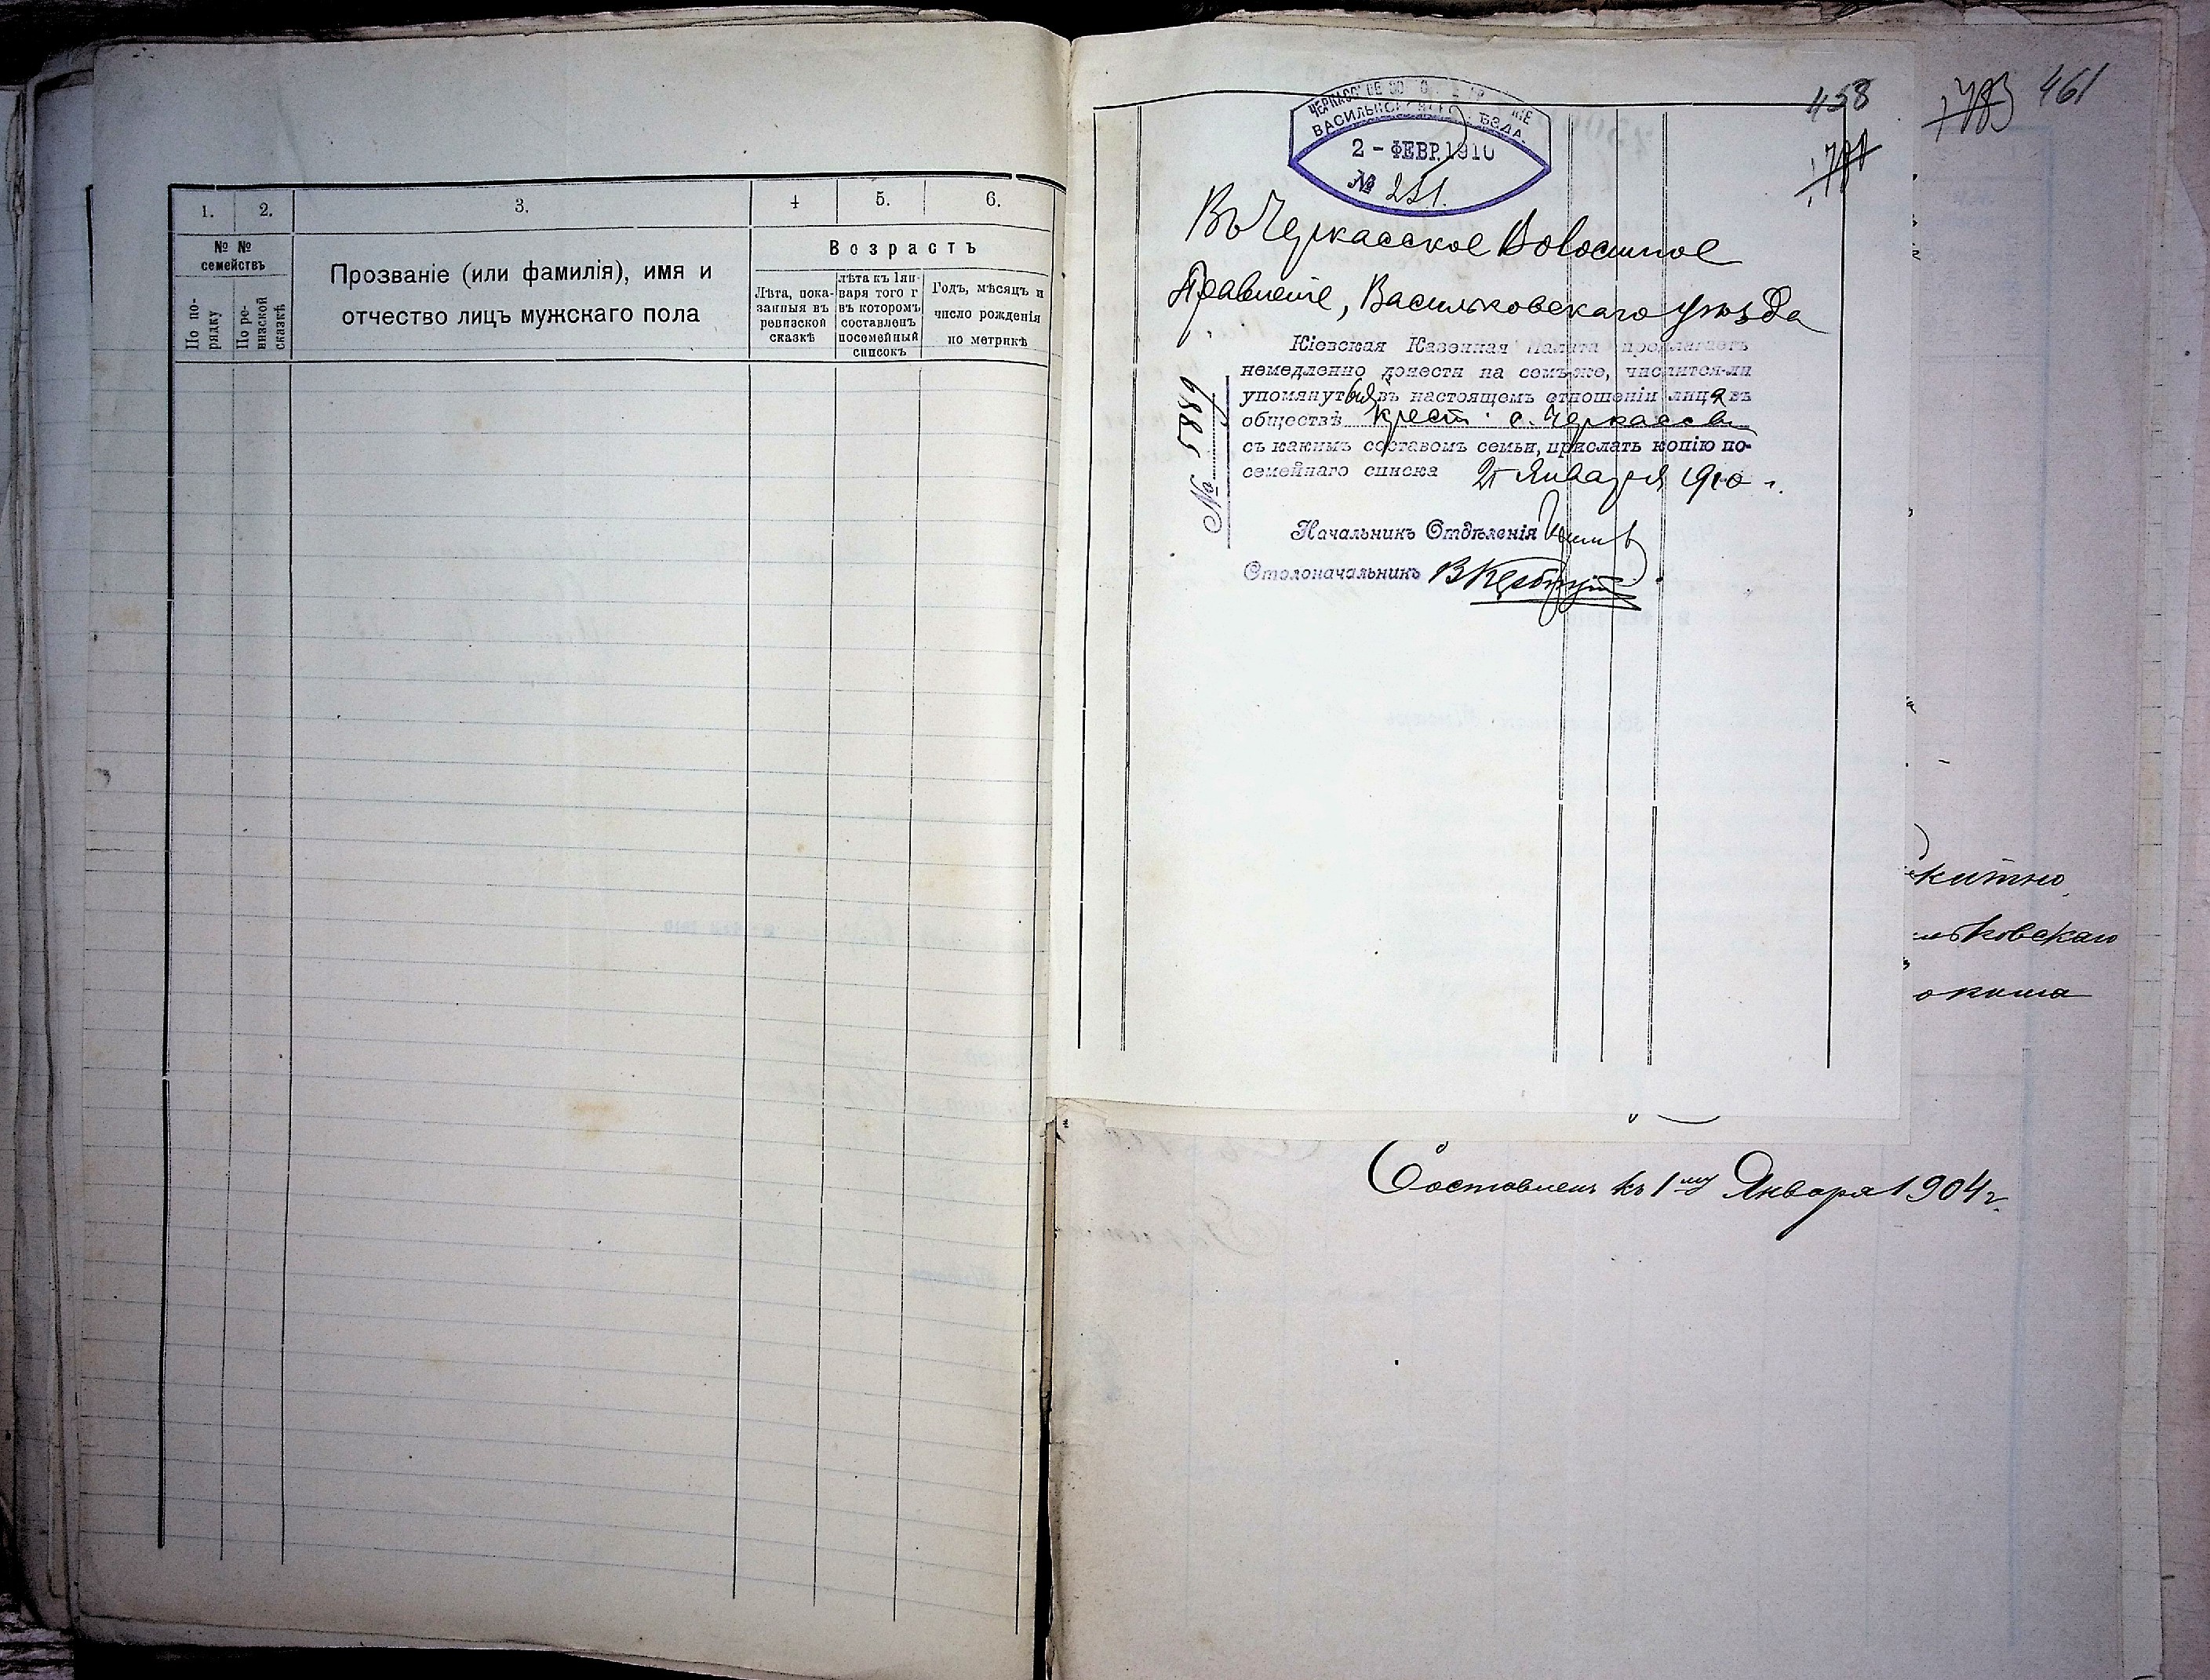 1. 2. 3. 4 5. 6.
№ №
семействъ
По по-
рядку
По ре-
визской
сказкѣ
Прозваніе (или фамилія), имя и
отчество лицъ мужскаго пола
Возрастъ
Лѣта, пока-
занныя въ
ревизской
сказкѣ
лѣта къ 1 ян-
варя того г
въ которомъ
составленъ
посемейный
списокъ
Годъ, мѣсяцъ и
число рожденія
по метрикѣ
458
1783 461
ВАСИЛЬКОВСКАГО УѢЗДА.
2 - ФЕВР. 1910
№ 251.
Въ Черкасское Волостное
Правленіе, Васильковскаго уѣзда
Кіевская Казенная Палата предлагаетъ
немедленно донести на семъ-же, числится-ли
упомянутый въ настоящемъ отношеніи лица въ
обществѣ крест. с. Черкассы
съ какимъ составомъ семьи, прислать копію по-
семейнаго списка 21 Января 1910 г.
№ 5859
Начальникъ Отдѣленія
Столоначальникъ
китно
льковскаго
окиша
Составленъ къ 1му Января 1904 г.